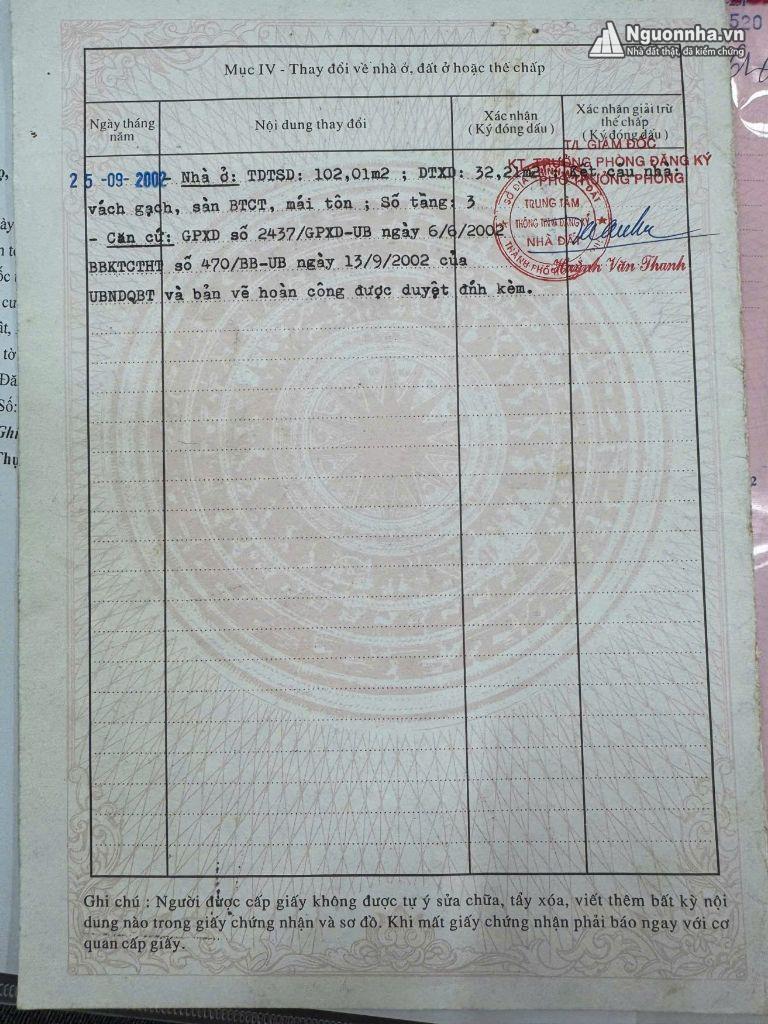 Nguonnha.vn
Nhà đất thật, đã kiểm chứng
520
Mục IV - Thay đổi về nhà ở, đất ở hoặc thế chấp
Ngày tháng năm
Nội dung thay đổi
Xác nhận
( Ký đóng dấu )
Xác nhận giải trừ
thế chấp
( Ký đóng dấu )
T/L GIÁM ĐỐC
KT. TRƯỞNG PHÒNG ĐĂNG KÝ
PHÓ TRƯỞNG PHÒNG
25 -09- 2002
- Nhà ở: TDTSD: 102,01m2 ; DTXD: 32,21m2 ; Kết cấu nhà:
vách gạch, sàn BTCT, mái tôn ; Số tầng: 3
- Căn cứ: GPXD số 2437/GPXD-UB ngày 6/6/2002
BBKTCTHT số 470/BB-UB ngày 13/9/2002 của
UBNDQBT và bản vẽ hoàn công được duyệt đính kèm.
TRUNG TÂM
THÔNG TIN VÀ ĐĂNG KÝ
NHÀ ĐẤT
Huỳnh Văn Thanh
Ghi chú : Người được cấp giấy không được tự ý sửa chữa, tẩy xóa, viết thêm bất kỳ nội
dung nào trong giấy chứng nhận và sơ đồ. Khi mất giấy chứng nhận phải báo ngay với cơ
quan cấp giấy.